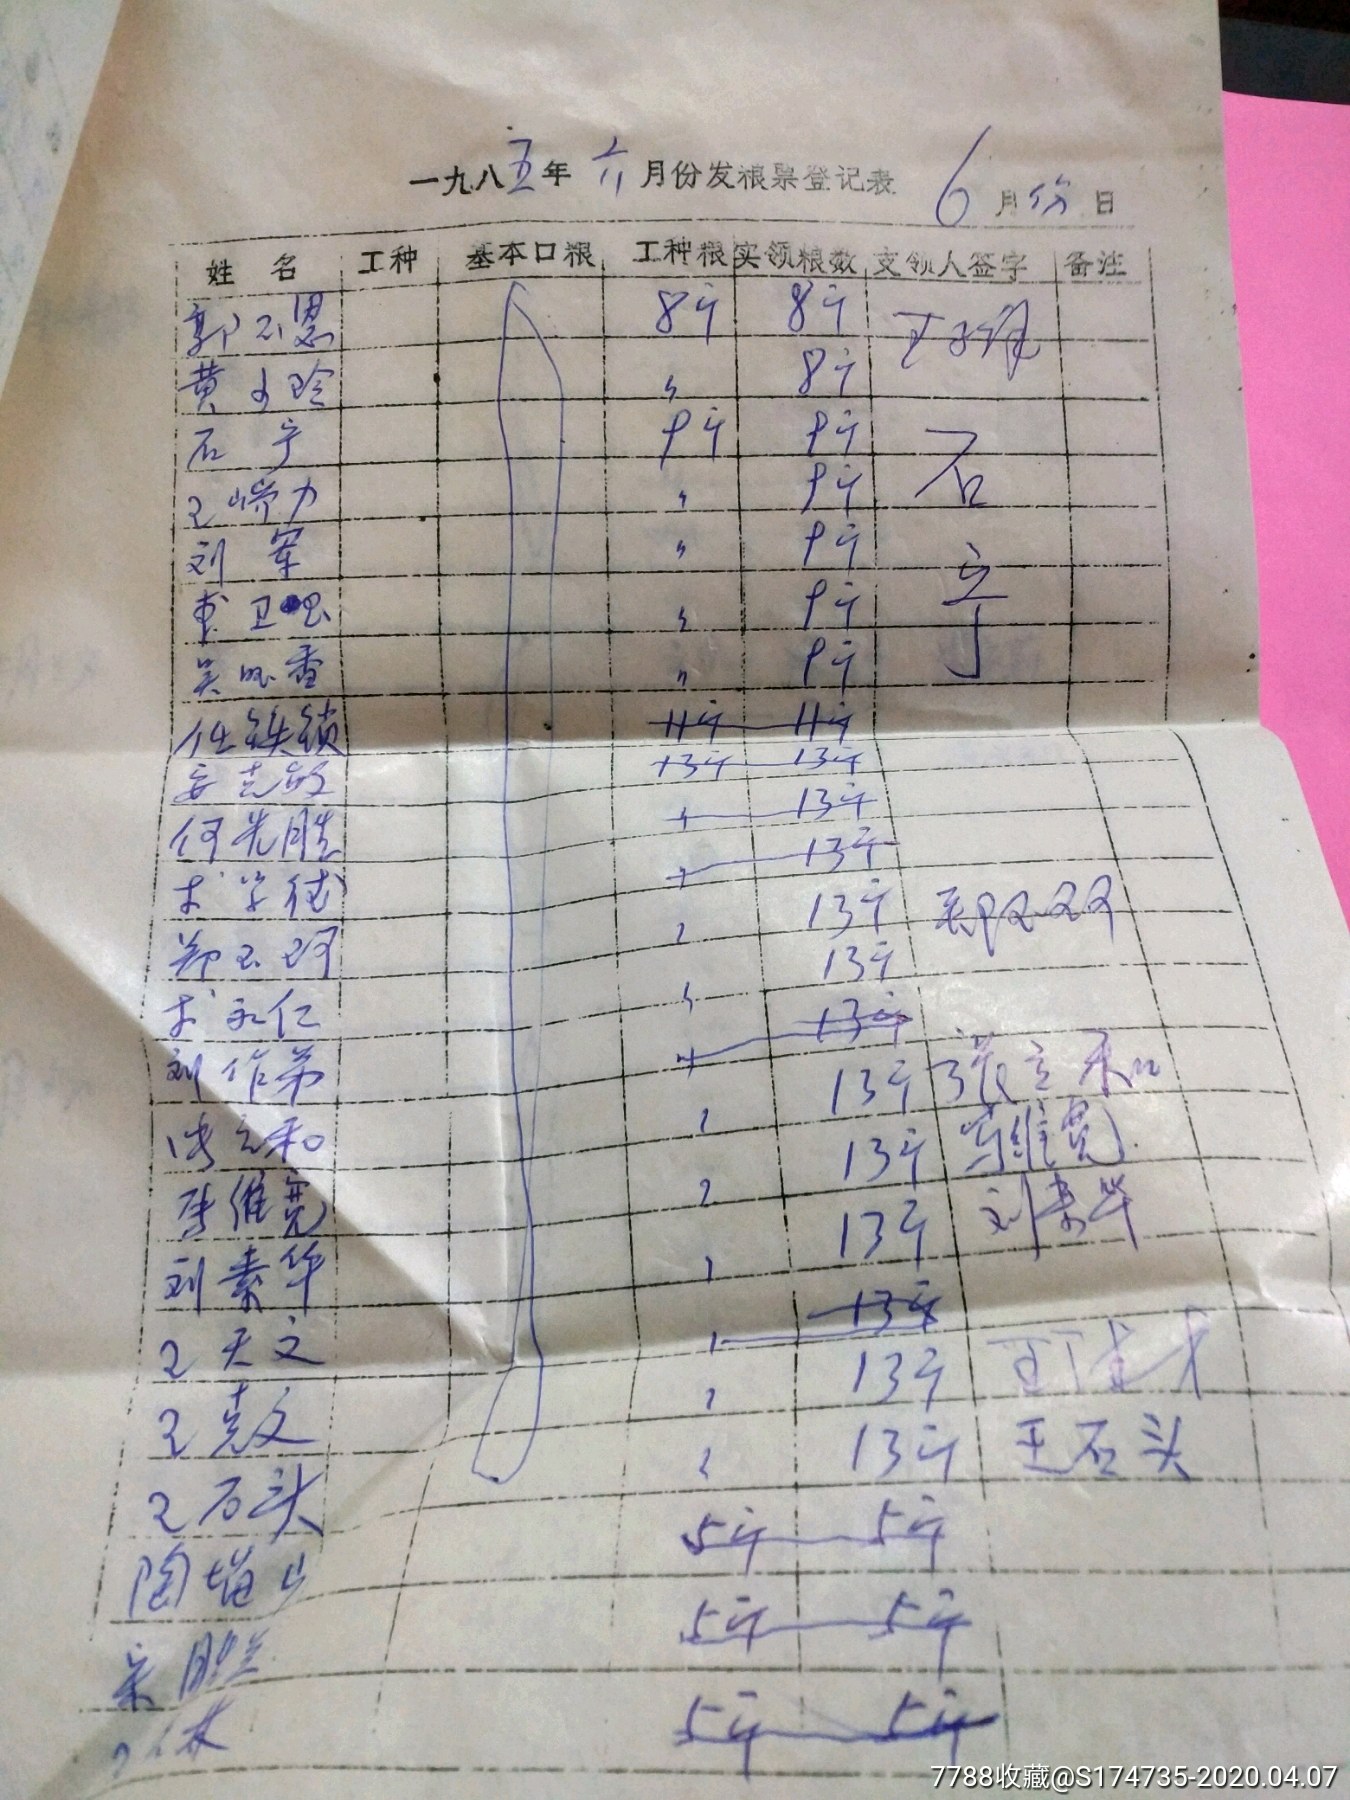 一九八五年 六 月份发粮票登记表 6月份日
姓名 工种 基本口粮 工种粮 实领粮数 支领人签字 备注
郭玉恩 8斤 8斤
黄 玲 〃 8斤
石宁 9斤 9斤 石宁
王 力 〃 9斤
刘军 〃 9斤
卫 〃 9斤
吴 香 〃 9斤
任铁锁 11斤 11斤
安克敏 13斤 13斤
何先胜 〃 13斤
学 〃 13斤
郑玉珂 〃 13斤 郑
永仁 〃 13斤
刘作弟 〃 13斤
张立和 〃 13斤 张立和
李维宽 〃 13斤 李维宽
刘素华 〃 13斤 刘素华
王天文 〃 13斤
王克文 〃 13斤 王
王石头 〃 13斤 王石头
陶 5斤 5斤
宋胜兰 5斤 5斤
林 5斤 5斤
7788收藏@S174735-2020.04.07